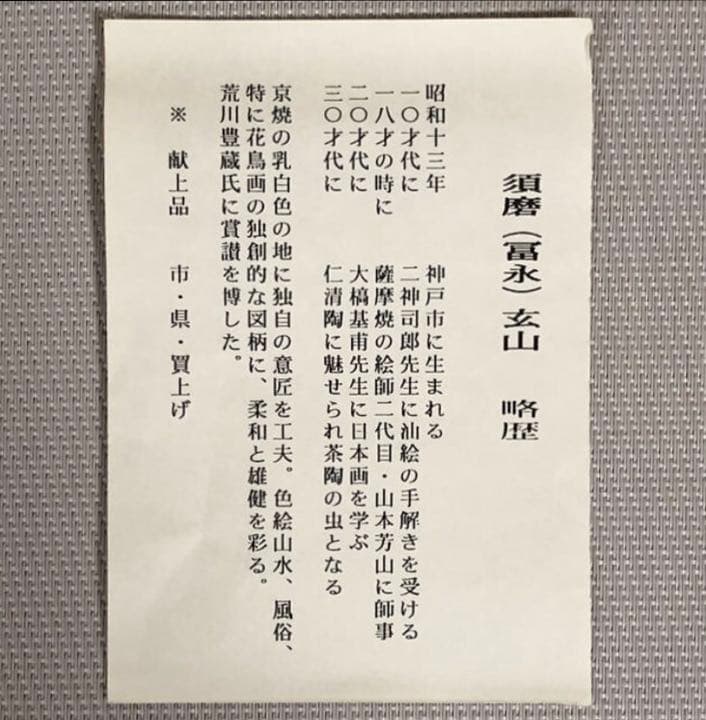 須磨(冨永)玄山 略歴
昭和十三年 神戸市に生まれる
一〇才代に 二神司郎先生に油絵の手解きを受ける
一八才の時に 薩摩焼の絵師二代目・山本芳山に師事
二〇才代に 大槁基甫先生に日本画を学ぶ
三〇才代に 仁清陶に魅せられ茶陶の虫となる
京焼の乳白色の地に独自の意匠を工夫。色絵山水、風俗、
特に花鳥画の独創的な図柄に、柔和と雄健を彩る。
荒川豊蔵氏に賞讃を博した。
※ 献上品 市・県・買上げ